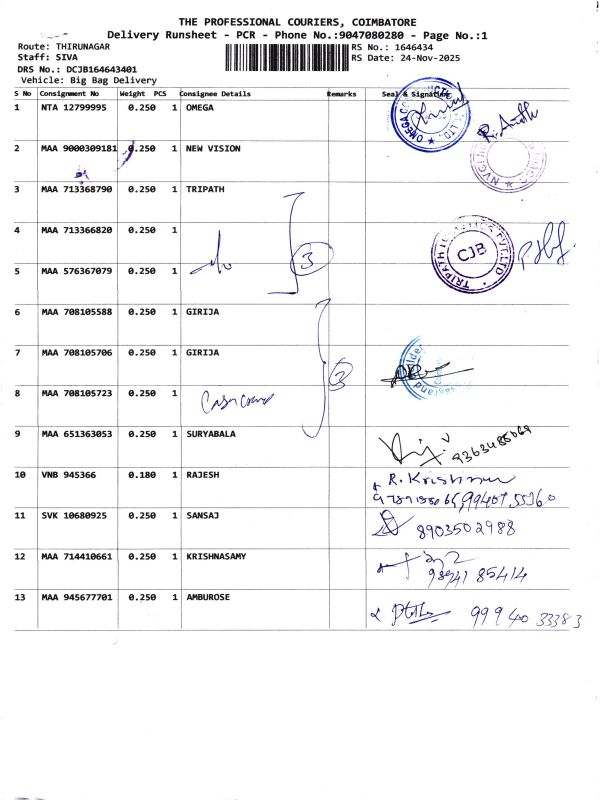 THE PROFESSIONAL COURIERS, COIMBATORE
Delivery Runsheet - PCR - Phone No.:9047080280 - Page No.:1
Route: THIRUNAGAR RS No.: 1646434
Staff: SIVA RS Date: 24-Nov-2025
DRS No.: DCJB164643401
Vehicle: Big Bag Delivery
S No Consignment No Weight PCS Consignee Details Remarks Seal & Signature
1 NTA 12799995 0.250 1 OMEGA
2 MAA 9000309181 0.250 1 NEW VISION
3 MAA 713368790 0.250 1 TRIPATH
4 MAA 713366820 0.250 1
CJB
5 MAA 576367079 0.250 1
3
6 MAA 708105588 0.250 1 GIRIJA
7 MAA 708105706 0.250 1 GIRIJA
3
8 MAA 708105723 0.250 1
9 MAA 651363053 0.250 1 SURYABALA
10 VNB 945366 0.180 1 RAJESH
R. Krishnan
11 SVK 10680925 0.250 1 SANSAJ
8903502988
12 MAA 714410661 0.250 1 KRISHNASAMY
85414
13 MAA 945677701 0.250 1 AMBUROSE
999 40 33383